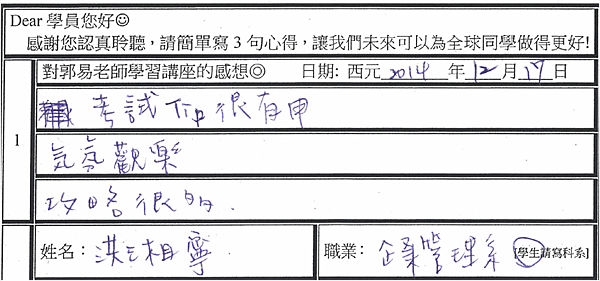 Dear 學員您好☺
感謝您認真聆聽，請簡單寫 3 句心得，讓我們未來可以為全球同學做得更好!
1
對郭易老師學習講座的感想◎ 日期: 西元 2014 年 12 月 17 日
考試 很有用
気氛觀樂
攻略很多.
姓名： 洪 相寧 職業： 企業管理系 [學生請寫科系]